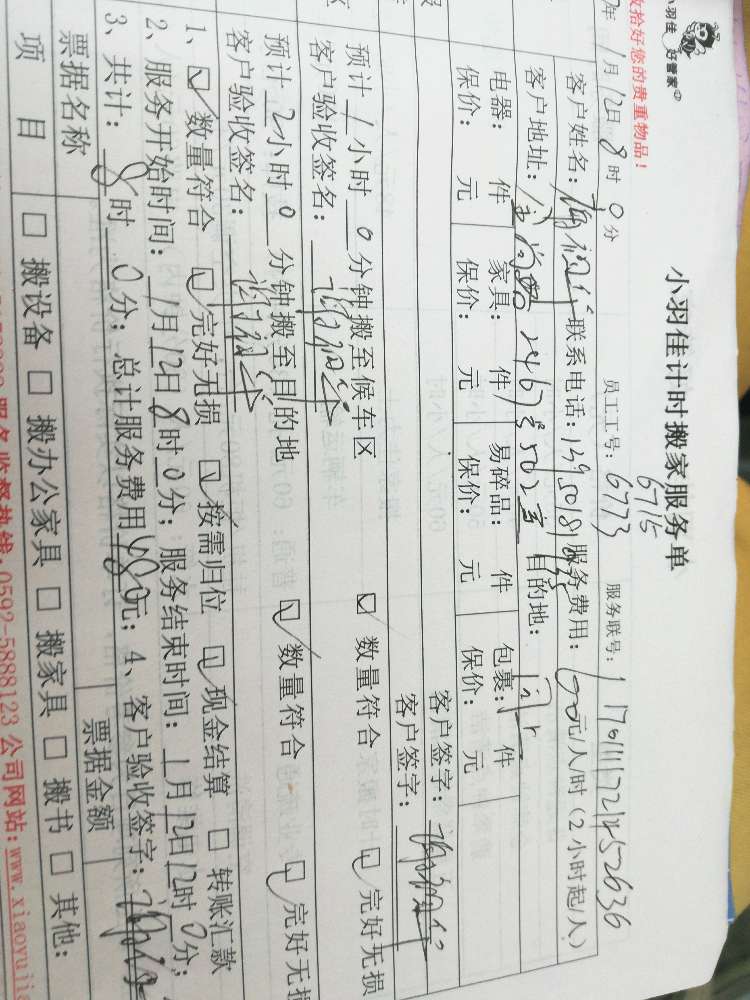 小羽佳 好管家
收拾好您的贵重物品!
小羽佳计时搬家服务单
6715
年 1月 12日 8时 0分 员工工号: 6773 服务联号:
客户姓名: 联系电话: 服务费用: 元/人/时 (2小时起/人)
客户地址: 目的地:
电器: 件 家具: 件 易碎品: 件 包裹: 件
保价: 元 保价: 元 保价: 元 保价: 元
客户签字:
客户签字:
预计 1 小时 0 分钟搬至候车区 ☑ 数量符合 ☑ 完好无损
客户验收签名:
预计 2 小时 0 分钟搬至目的地 ☑ 数量符合 ☑ 完好无损
客户验收签名:
1、☑ 数量符合 ☑ 完好无损 ☑ 按需归位 ☑ 现金结算 □ 转账汇款
2、服务开始时间: 1月12日8时0分; 服务结束时间: 1月12日12时0分;
3、共计: 8时 0分; 总计服务费用480元; 4、客户验收签字:
票据名称 票据金额
项 目 □ 搬设备 □ 搬办公家具 □ 搬家具 □ 搬书 □ 其他:
服务监督热线:0592-5888123 公司网站:www.xiaoyujia